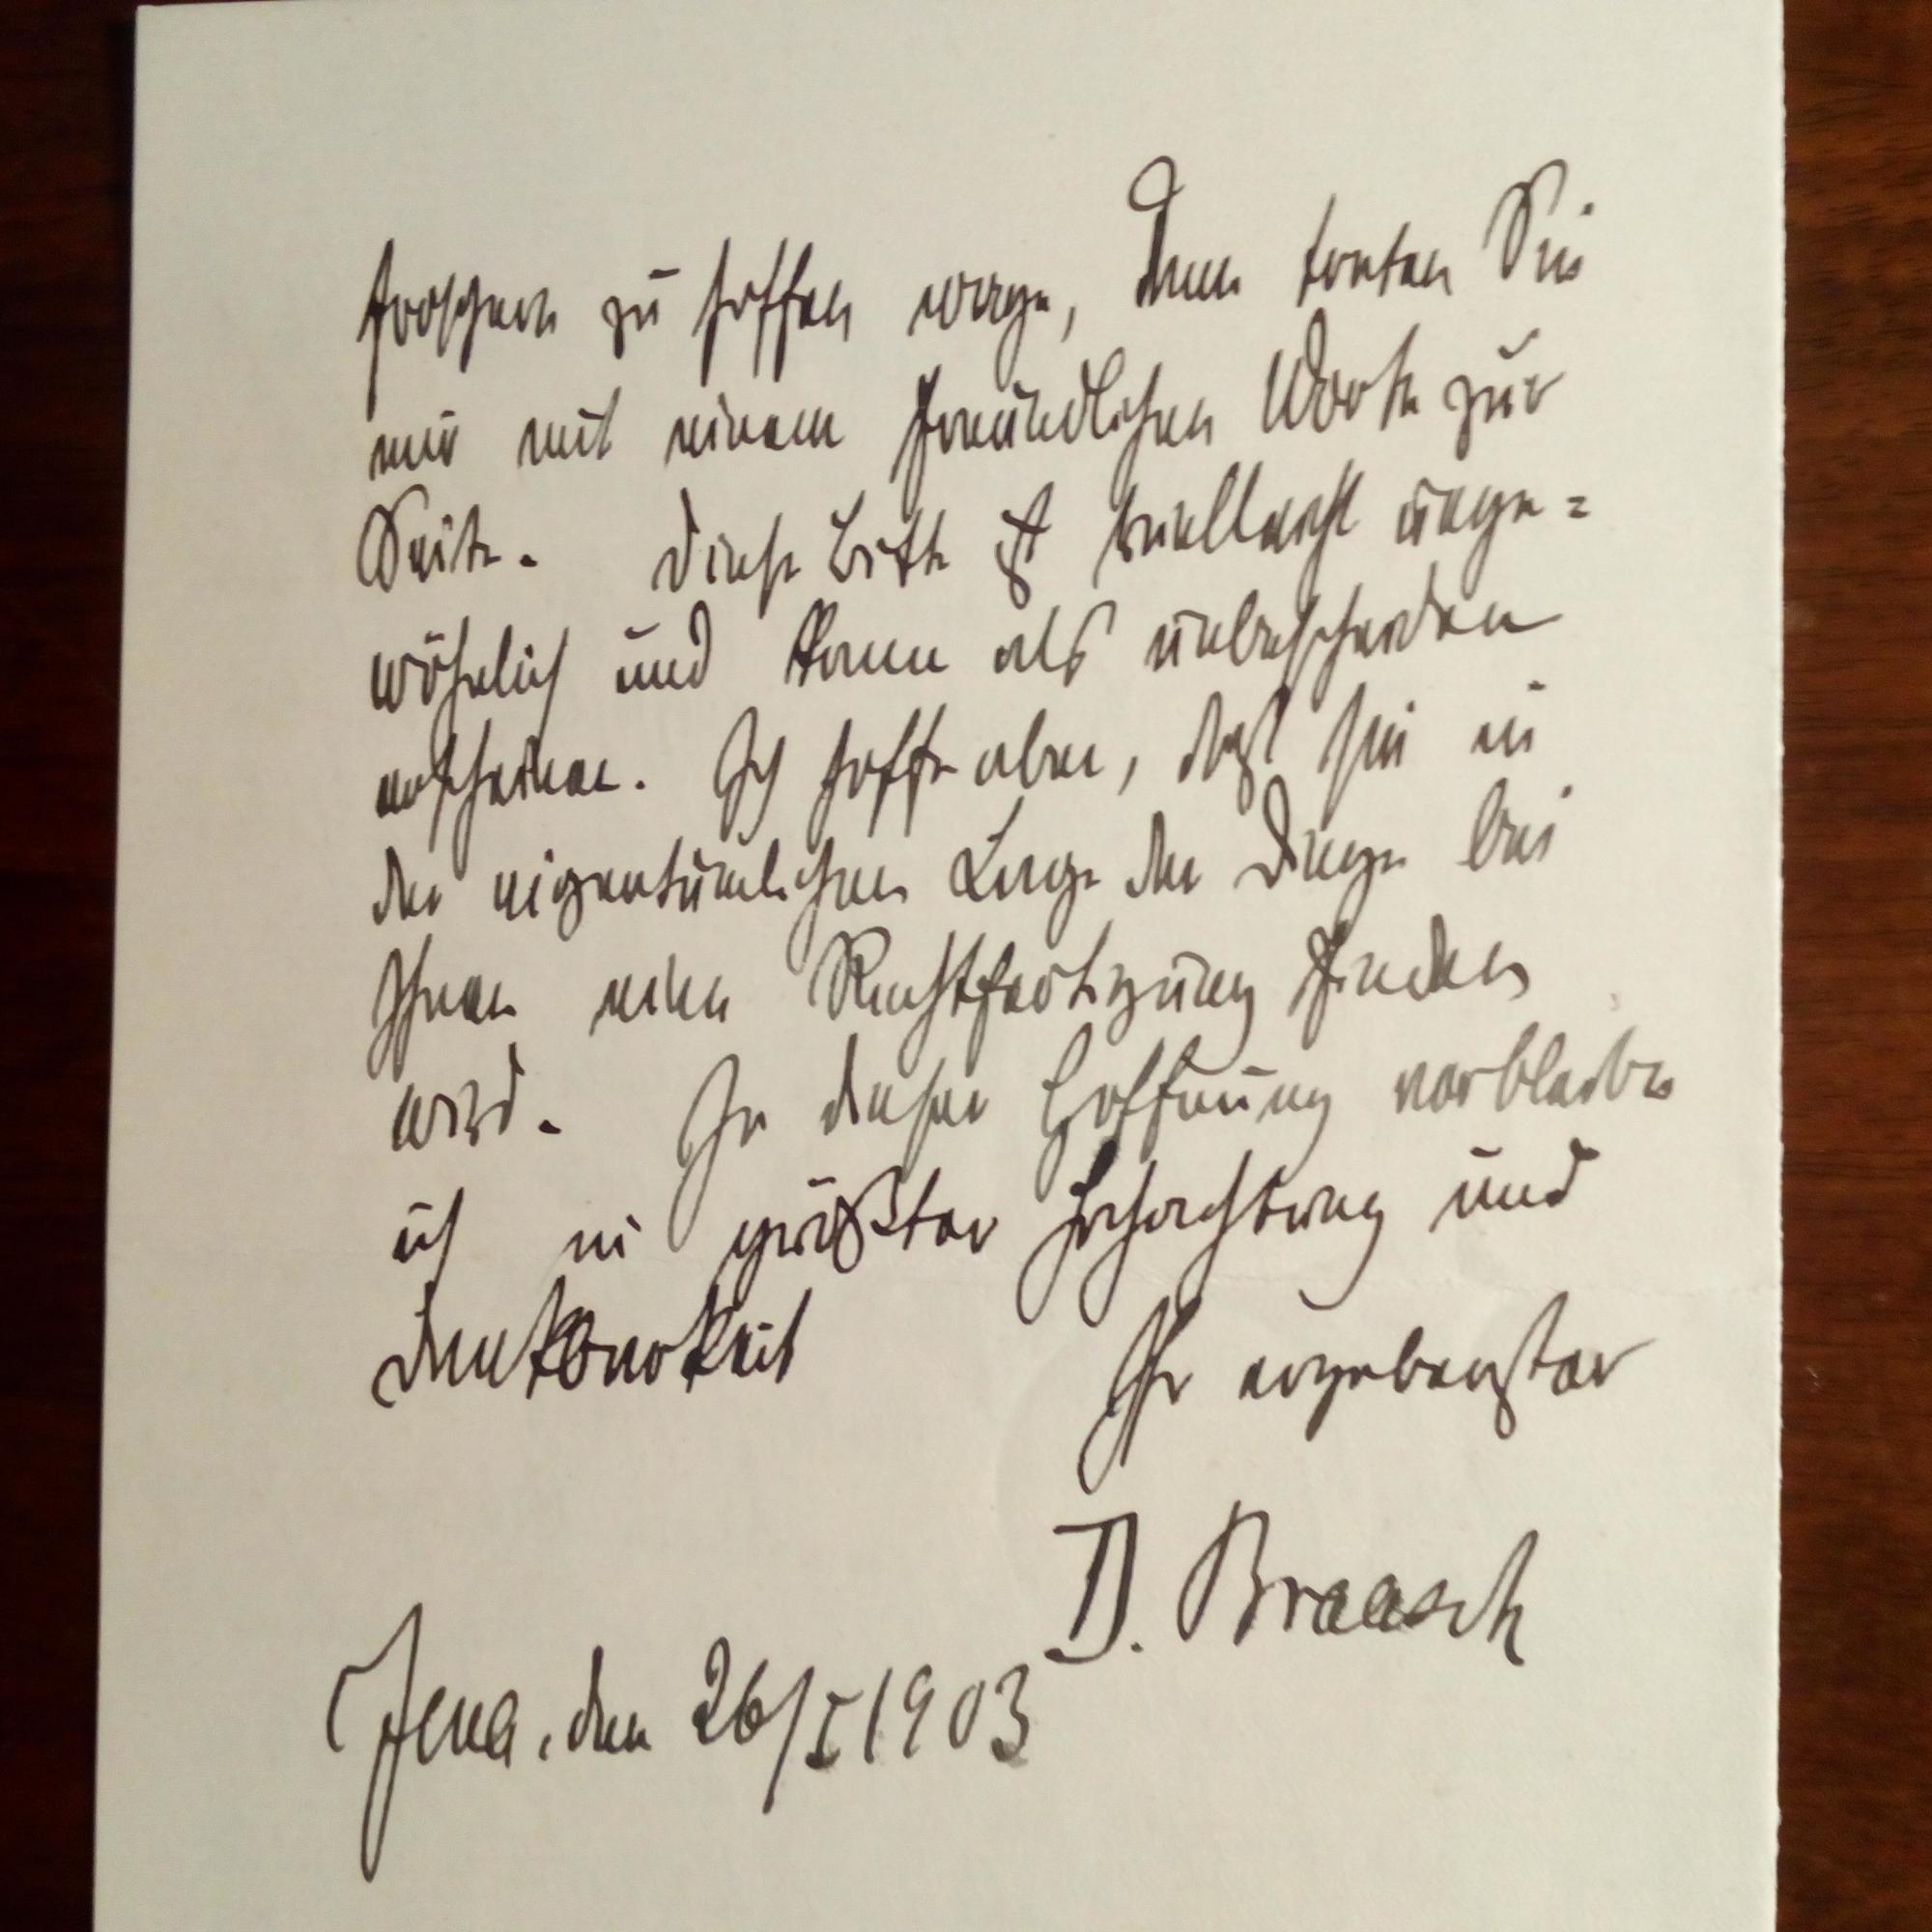 forschen zu hoffen wage, dann treten Sie
mir mit einem freundlichen Worte zur
Seite. Diese Bitte ist vielleicht unge=
wöhnlich und kann als unbescheiden
erscheinen. Ich hoffe aber, daß sie in
der eigentümlichen Lage der Dinge bei
Ihnen eine Rechtfertigung finden
wird. In dieser Hoffnung verbleibe
ich in größter Hochachtung und
Dankbarkeit Ihr ergebenster
D. Braasch
Jena, den 26/I 1903